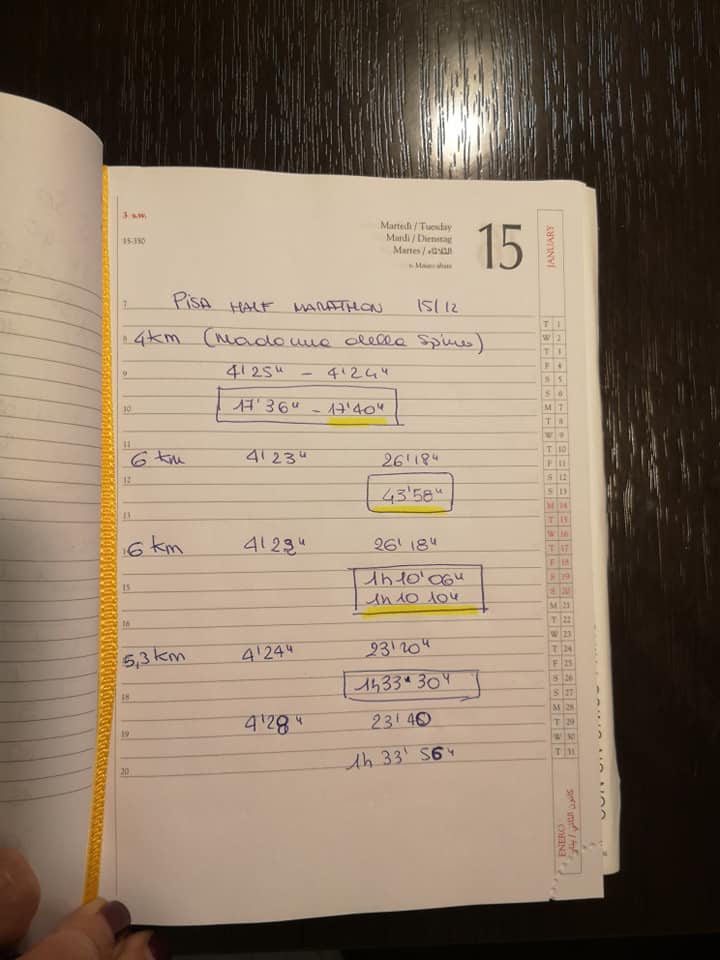 3 s.w.
15-350
Martedì / Tuesday
Mardi / Dienstag
Martes / الثلاثاء
s. Mauro abate
15
JANUARY
7 PISA HALF MARATHON 15/12
8 4km (Madonna della Spina)
9 4'25" - 4'24"
10 17'36" - 17'40"
11
6 km 4'23" 26'18"
12
43'58"
13
6 km 4'23" 26'18"
1h 10'06"
15
1h 10 10"
16
5,3 km 4'24" 23'20"
18 1h33' 30"
19 4'28" 23'40
20 1h 33' 56"
T 1
W 2
T 3
F 4
S 5
S 6
M 7
T 8
W 9
T 10
F 11
S 12
S 13
M 14
T 15
W 16
T 17
F 18
S 19
S 20
M 21
T 22
W 23
T 24
F 25
S 26
S 27
M 28
T 29
W 30
T 31
ENERO
كانون الثاني / يناير